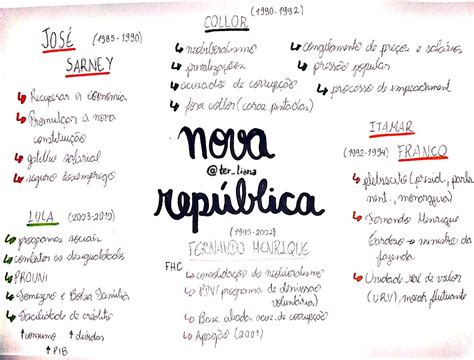 JOSÉ (1985-1990)
SARNEY
Recuperar a economia
Promulgar a nova
constituição
gatilho salarial
seguro desemprego
COLLOR (1990-1992)
neoliberalismo
privatizações
acusados de corrupção
fora collor (caras pintadas)
congelamento de preços e salários
pressão popular
processo de impeachment
nova
@ter_liana
república
ITAMAR
(1992-1994) FRANCO
plebiscito (presid., parla
ment., monarquia)
Fernando Henrique
Cardoso → ministro da
fazenda
Unidade real de valor
(URV), moeda flutuante
LULA (2003-2010)
programas sociais
combater as desigualdades
PROUNI
Fomezero e Bolsa Família
Facilidade de crédito
↑consumo ↑dívidas
↑PIB
(1995-2002)
FERNANDO HENRIQUE
FHC
consolidação do neoliberalismo
PDV (programa de demissão
voluntária)
Base aliada acus. de corrupção
Apagão (2001)